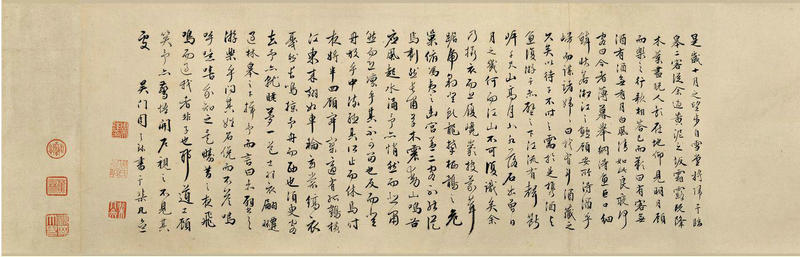 是歲十月之望步自雪堂將歸于臨
皋二客從余過黃泥之坂霜露既降
木葉盡脫人影在地仰見明月顧
而樂之行歌相答已而歎曰有客無
酒有酒無肴月白風清如此良夜何
客曰今者薄暮舉網得魚巨口細
鱗狀若淞江之鱸顧安所得酒乎
歸而謀諸婦婦曰我有斗酒藏之
久矣以待子不時之需於是攜酒與
魚復游於赤壁之下江流有聲斷
岸千尺山高月小水落石出曾日
月之幾何而江山不可復識矣余
乃攝衣而上履巉巖披蒙茸
踞虎豹登虬龍攀栖鶻之危
巢俯馮夷之幽宮蓋二客不能從
焉劃然長嘯草木震動山鳴谷
應風起水涌予亦悄然而悲肅
然而恐凜乎其不可留也反而登
舟放乎中流聽其所止而休焉時
夜將半四顧寂寥適有孤鶴橫
江東來翅如車輪玄裳縞衣
戛然長鳴掠予舟而西也須臾客
去予亦就睡夢一道士羽衣翩躚
過臨皋之下揖予而言曰赤壁之
游樂乎問其姓名俛而不答嗚
呼噫嘻我知之矣疇昔之夜飛
鳴而過我者非子也耶道士顧
笑予亦驚悟開戶視之不見其
處 吳門周之 書于